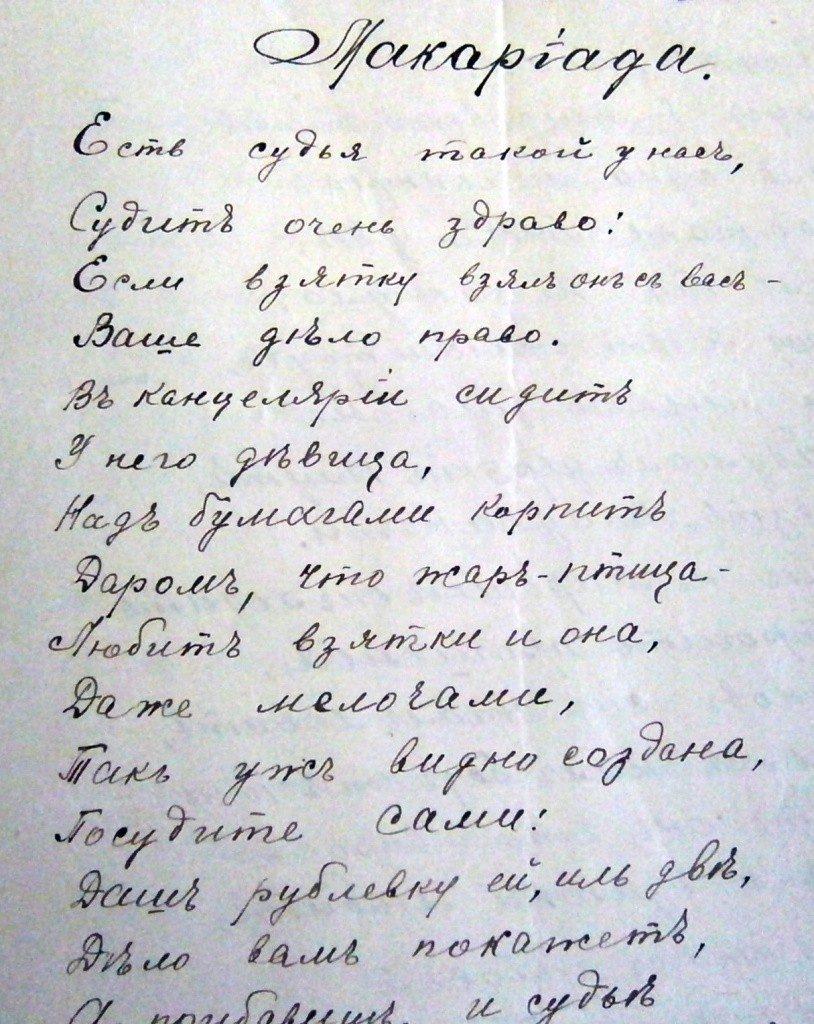 Макаріада.
Есть судья такой у насъ,
Судитъ очень здраво:
Если взятку взялъ онъ съ васъ -
Ваше дѣло право.
Въ канцеляріи сидитъ
У него дѣвица,
Надъ бумагами корпитъ
Даромъ, что жаръ-птица -
Любитъ взятки и она,
Даже мелочами,
Такъ ужъ видно создана,
Посудите сами:
Дашь рублевку ей, иль двѣ,
Дѣло вамъ покажетъ,
А прибавишь, и судьѣ